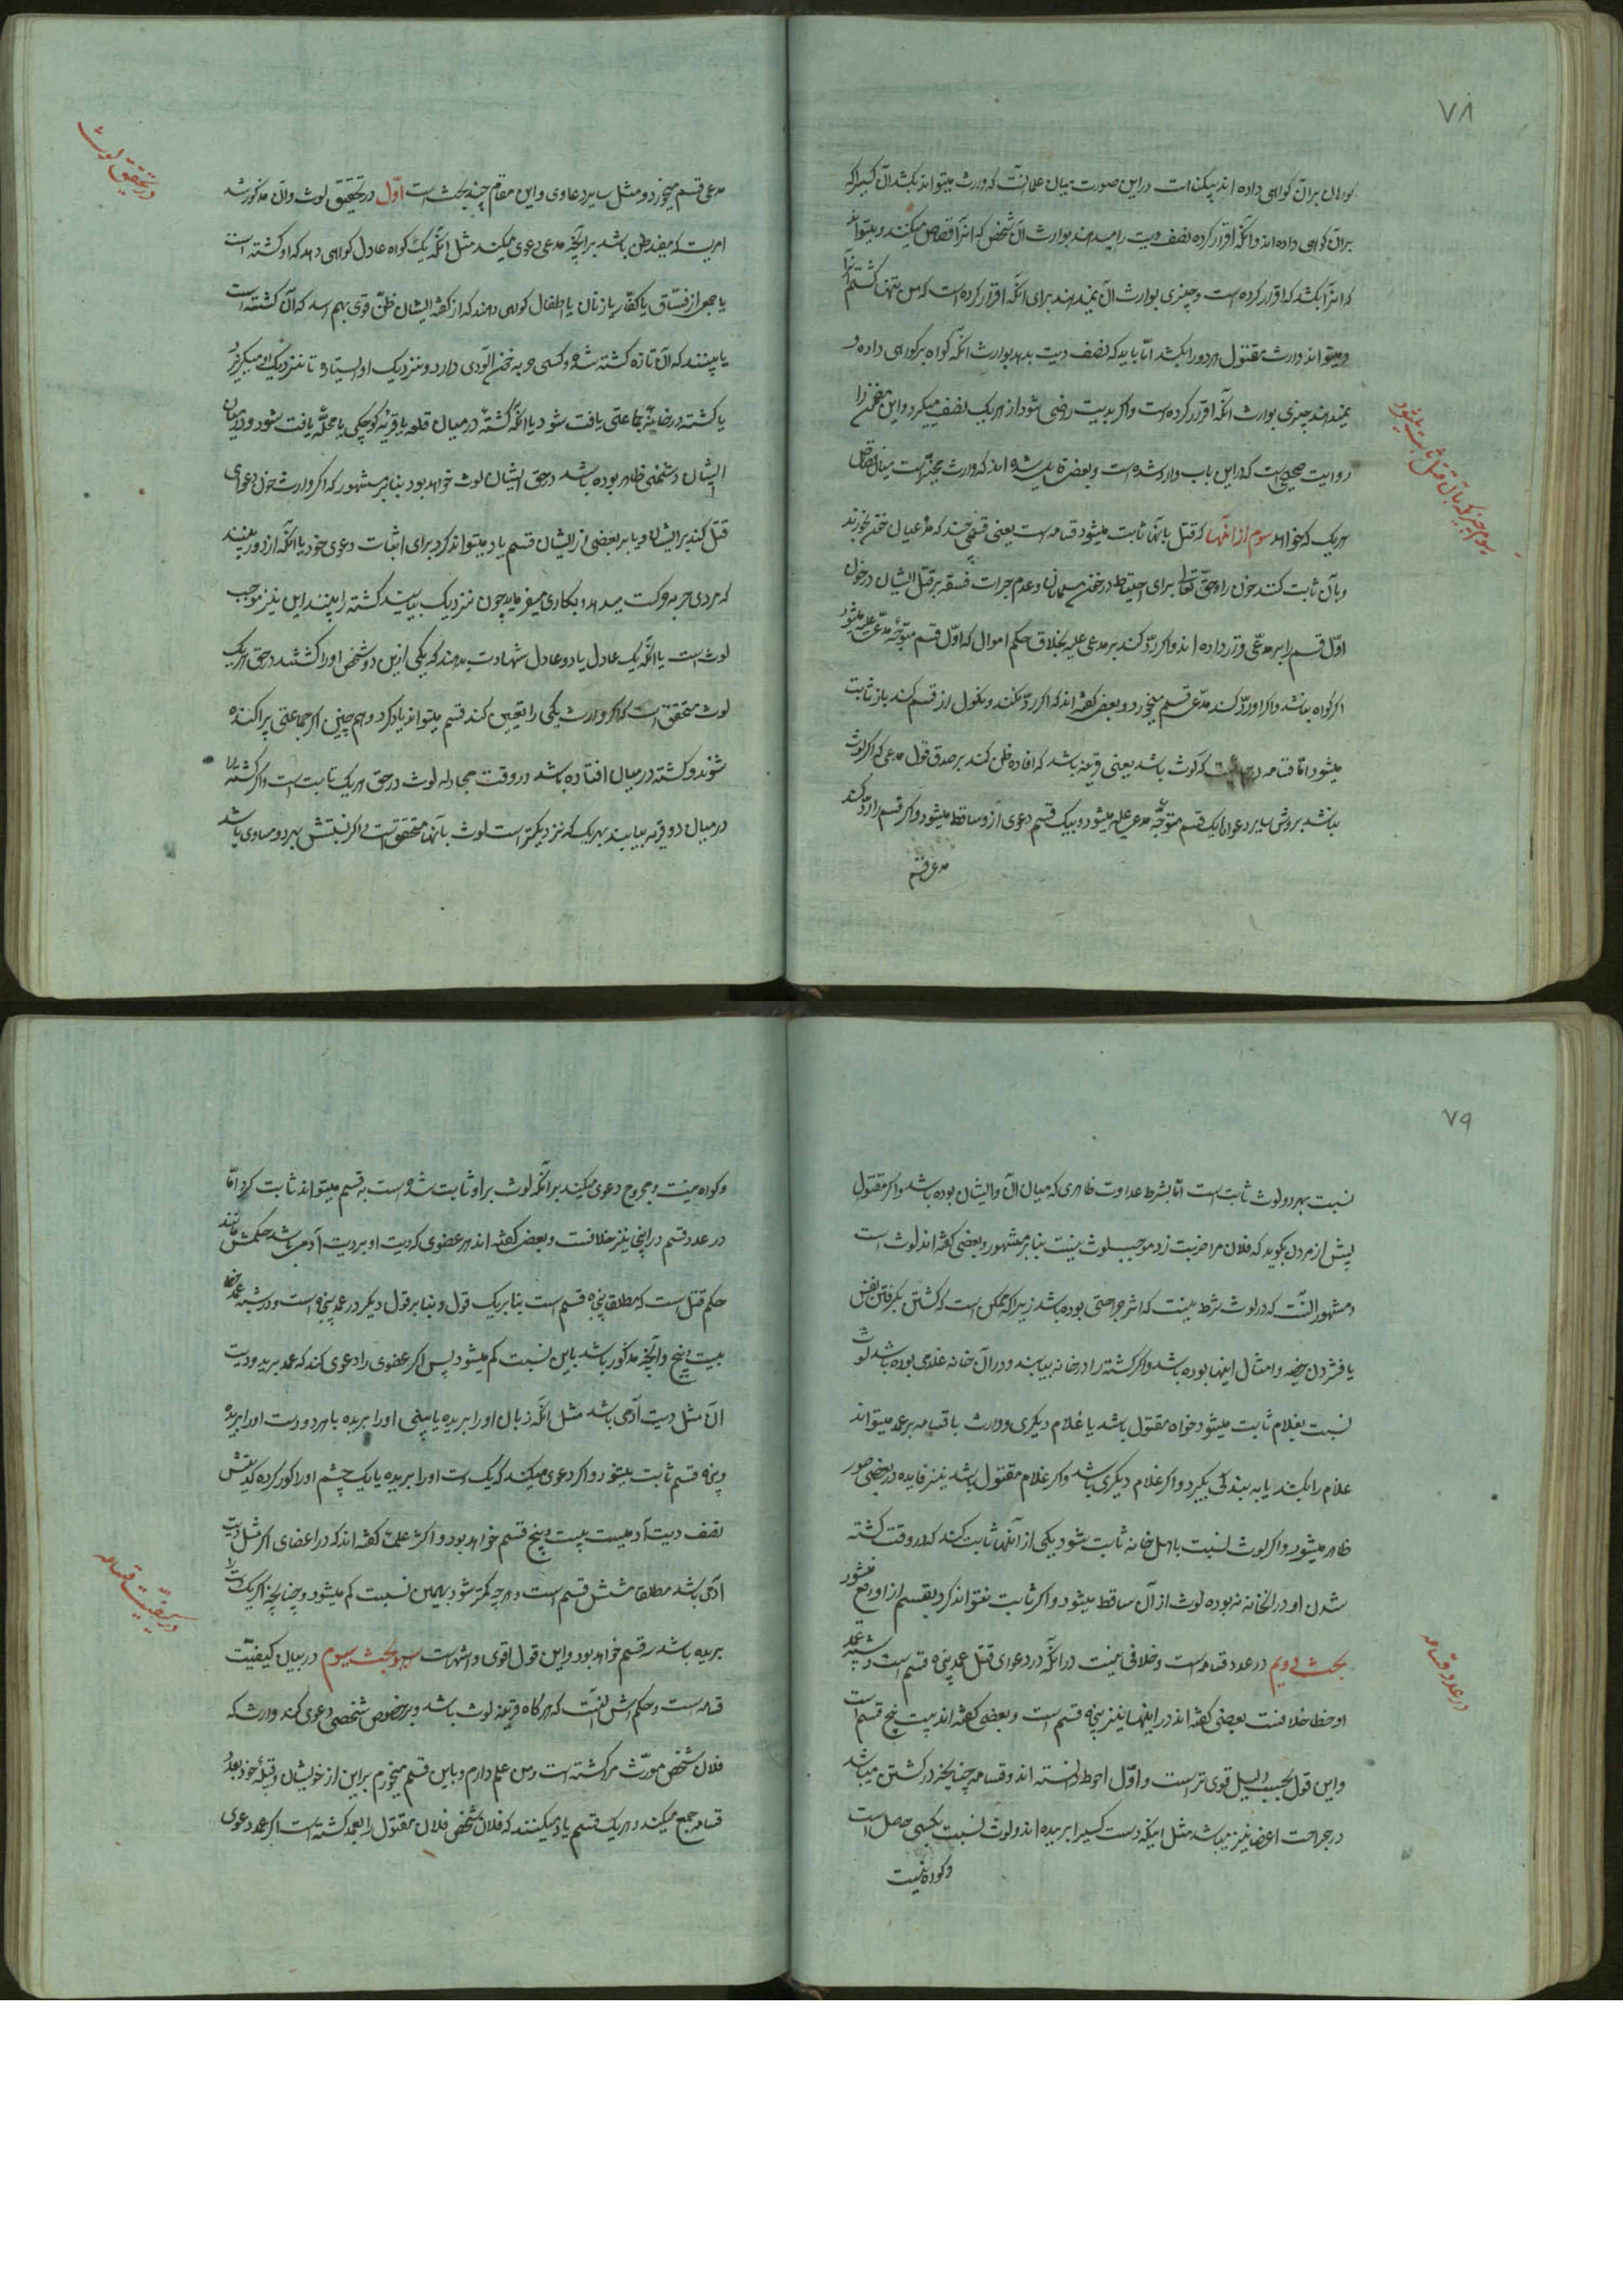 ۷۸
گواهان بر آن گواهی داده اند بیکناه است در این صورت میان علما آنست که وارث میتواند بکشد آن کسیرا که
بر آن گواهی داده اند و آنکه اقرار کرده نصف دیت را میدهد بوارث آن شخص که او را قصاص میکنند و میتواند
که آنرا بکشد که اقرار کرده است و چیزی بوارث آن نمیدهند برای آنکه اقرار کرده است که من تنها کشتم او را
و میتواند وارث مقتول هر دو را بکشد امّا باید که نصف دیت بدهد بوارث آنکه گواه بر او گواهی داده و
نمیدهند چیزی بوارث آنکه اقرار کرده است و اگر بدیت راضی شود از هر یک نصف میگیرد و این مضمون را
روایت صحیحی است که در این باب وارد شده است و بعضی قایل شده اند که وارث مخیّر است میان قصاص
هر یک که خواهد سوم از آنها که قتل بآنها ثابت میشود قسامه است یعنی قسمی چند که مدّعیان خون بخورند
و بآن ثابت کنند خون را و حقّ تعالی برای احتیاط در خون مسلمانان و عدم جرات فسقه بر قتل ایشان در خون
اوّل قسم را بر مدّعی قرار داده اند و اگر ردّ کند بر مدعی علیه بخلاف حکم اموال که اوّل قسم متوجّه مدّعی علیه میشود
اگر گواه نباشد و اگر او ردّ کند مدّعی قسم میخورد و بعضی گفته اند که اگر ردّ نکند و نکول از قسم کند باز ثابت
میشود امّا قسامه در جائیست که لوث باشد یعنی قرینه باشد که افاده ظن کند بر صدق قول مدعی که اگر لوث
نباشد بروش سایر دعواها یک قسم متوجّه مدعی علیه میشود و بیک قسم دعوی از او ساقط میشود و اگر قسم را ردّ کند
مدعی قسم
سیوم چیزیکه بآن قتل ثابت میشود
مدعی قسم میخورد و مثل سایر دعاوی و این مقام چند بحث است اوّل در تحقیق لوث و آن مذکور شد
امریست که مفید ظن باشد بر آنچه مدعی دعوی میکند مثل آنکه یک گواه عادل گواهی دهد که او کشته است
یا جمعی از فسّاق یا کفّار یا زنان یا اطفال گواهی دهند که از گفته ایشان ظنّ قوی بهم رسد که آن کشته است
یا ببینند که آن تازه کشته شده و کسی حربه خون آلودی دارد و نزدیک او ایستاده تا نزدیک او میگریزد
یا کشته در خانه جماعتی یافت شود یا آنکه کشته در میان قلعه یا قریه کوچکی یا محلّه یافت شود و در میان
ایشان دشمنی ظاهر بوده باشد در حق ایشان لوث خواهد بود بنابر مشهور که اگر وارث خون دعوای
قتل کند بر ایشان و یا بر بعضی از ایشان قسم یاد میتواند کرد برای اثبات دعوی خود یا آنکه از دور ببینند
که مردی حربه حرکت میدهد و بکاری میفرماید چون نزدیک بیایند کشته را ببینند این نیز موجب
لوث است یا آنکه یک عادل یا دو عادل شهادت بدهند که یکی از این دو شخص او را کشتند در حق هر یک
لوث متحقق است که اگر وارث یکی را تعیین کند قسم میتواند یاد کرد و هم چنین اگر جماعتی پراکنده
شوند و کشته در میان افتاده باشد در وقت مجادله لوث در حق هر یک ثابت است و اگر کشته را
در میان دو قریه بیابند بهر یک که نزدیکتر است لوث بآنها متحققست و اگر نسبتش بهر دو مساوی باشد
در تحقیق لوث
۷۹
نسبت بهر دو لوث ثابت است امّا بشرط عداوت ظاهری که میان آن و ایشان بوده باشد و اگر مقتول
پیش از مردن بگوید که فلان مرا ضربت زد موجب لوث نیست بنابر مشهور و بعضی گفته اند لوث است
و مشهور آنست که در لوث شرط نیست که اثر جراحتی بوده باشد زیرا که ممکن است که کشتن بگرفتن نفس
یا فشردن خصیه و امثال اینها بوده باشد و اگر کشته را در خانه بیابند و در آن خانه غلامی بوده باشد لوث
نسبت بغلام ثابت میشود خواه مقتول باشد یا غلام دیگری و وارث با قسامه بر عمد میتواند
غلام را بکشد یا به بندگی بگیرد و اگر غلام دیگری باشد و اگر غلام مقتول باشد نیز فایده در بعضی صور
ظاهر میشود و اگر لوث نسبت باهل خانه ثابت شود یکی از آنها ثابت کند که در وقت کشته
شدن او در آنخانه نبوده لوث از آن ساقط میشود و اگر ثابت نتواند کرد بقسم از او رفع میشود
بحث دویم در عدد قسامه است و خلافی نیست در آنکه در دعوای قتل عمد پنجاه قسم است و در شبه عمد
و خطا خلافست بعضی گفته اند در اینها نیز پنجاه قسم است و بعضی گفته اند بیست پنج قسم است
و این قول بحسب دلیل قوی تر است و اوّل احوط دانسته اند و قسامه چنانچه در کشتن میباشد
در جراحت اعضا نیز میباشد مثل اینکه دست کسیرا بریده اند و لوث نسبت بکسی حاصل است
و گواه نیست
در عدد قسامه
و گواه نیست و مجروح دعوی میکند بر آنکه لوث بر او ثابت شده است به قسم میتواند ثابت کرد امّا
در عدد قسم در اینجا نیز خلافست و بعضی گفته اند هر عضوی که دیت او بر دیت آدمی باشد حکمش مانند
حکم قتل است که مطلقا پنجاه قسم است بنابر یک قول و بنابر قول دیگر در عمد پنجاه است و در شبه عمد و خطا
بیست و پنج و آنچه مذکور باشد باین نسبت کم میشود پس اگر عضوی را دعوی کند که عمد برید و دیت
آن مثل دیت آدمی باشد مثل آنکه زبان او را بریده یا بینی او را بریده یا هر دو دست او را بریده
پنجاه قسم ثابت میشود و اگر دعوی میکند که یک دست او را بریده یا یک چشم او را کور کرده که دیتش
نصف دیت آدمیست بیست و پنج قسم خواهد بود و اکثر علما گفته اند که در اعضای اگر مثل دیت
آدمی باشد مطلقا شش قسم است و هر چه کمتر شود بهمین نسبت کم میشود و چنانچه اگر یک دست را
بریده باشد سه قسم خواهد بود و این قول اقوی و اشهر است بحث سیوم در بیان کیفیّت
قسامه است و حکمش آنست که هر گاه قرینه لوث باشد و بر خصوص شخصی دعوی کند وارث که
فلان شخص مورّث مرا کشته است و من علم دارم و باین قسم میخورم بر این از خویشان و قبیله خود بعدد
قسامه جمع میکند و هر یک قسم یاد میکنند که فلان شخص فلان مقتول را بعمد کشته است اگر عمد دعوی
در کیفیّت قسامه